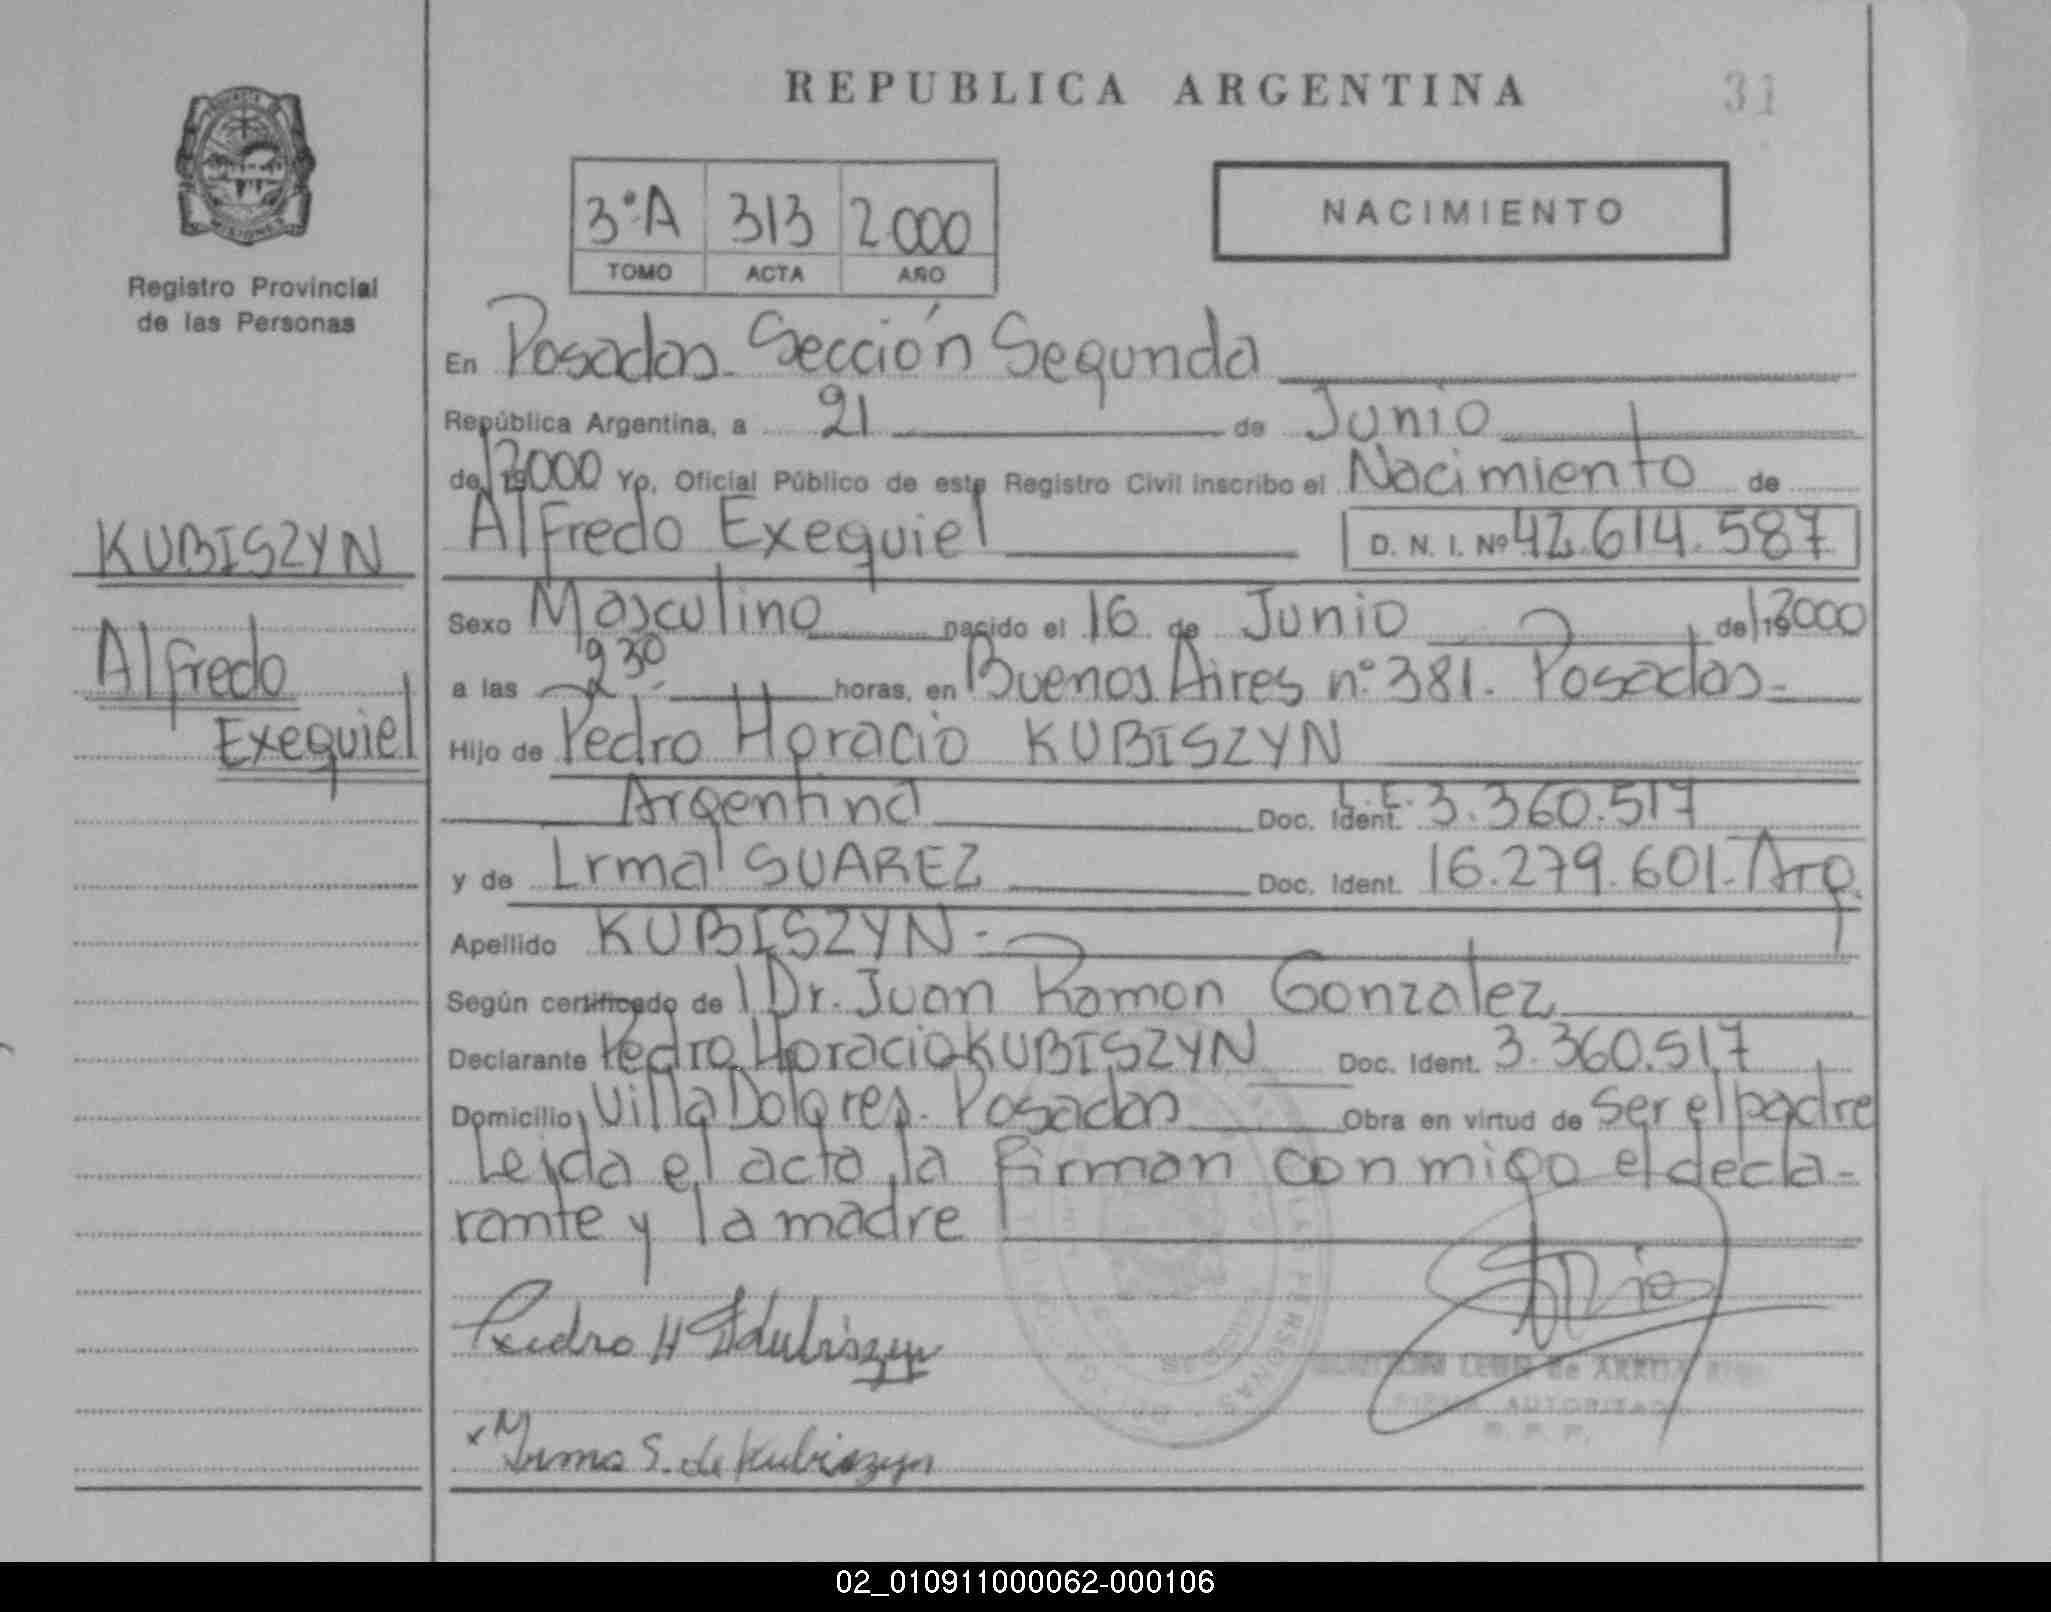 REPUBLICA ARGENTINA
31
Registro Provincial
de las Personas
3ºA 313 2000
TOMO ACTA AÑO
NACIMIENTO
En Posadas. Sección Segunda
República Argentina, a 21 de Junio
de 2000 Yo, Oficial Público de este Registro Civil inscribo el Nacimiento de
Alfredo Exequiel D. N. I. Nº 42.614.587
KUBISZYN
Alfredo
Exequiel
Sexo Masculino nacido el 16 de Junio de 2000
a las 2 30 horas, en Buenos Aires nº 381. Posadas
Hijo de Pedro Horacio KUBISZYN
Argentina Doc. Ident. L.E. 3.360.517
y de Irma SUAREZ Doc. Ident. 16.279.601. Arg.
Apellido KUBISZYN.
Según certificado de Dr. Juan Ramon Gonzalez
Declarante Pedro Horacio KUBISZYN Doc. Ident. 3.360.517
Domicilio Villa Dolores. Posadas Obra en virtud de ser el padre
Leida el acta, la firman conmigo el decla-
rante y la madre
Pedro H Kubiszyn
x Irma S. de Kubiszyn
FIRMA AUTORIZADA
R. P. P.
02_010911000062-000106